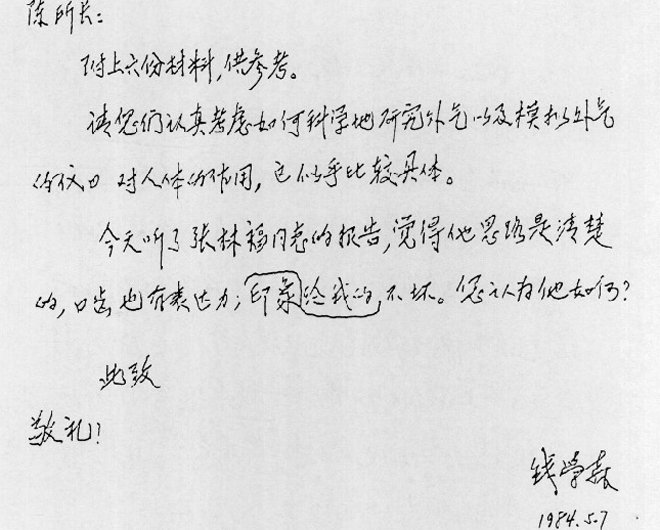 陈所长:
附上六份材料,供参考。
请您们认真考虑如何科学地研究外气以及模拟外气
的仪口 对人体的作用,它似乎比较具体。
今天听了张林福同志的报告,觉得他思路是清楚
的,口齿也有表达力;印象给我的,不坏。您认为他如何?
此致
敬礼!
钱学森
1984.5.7